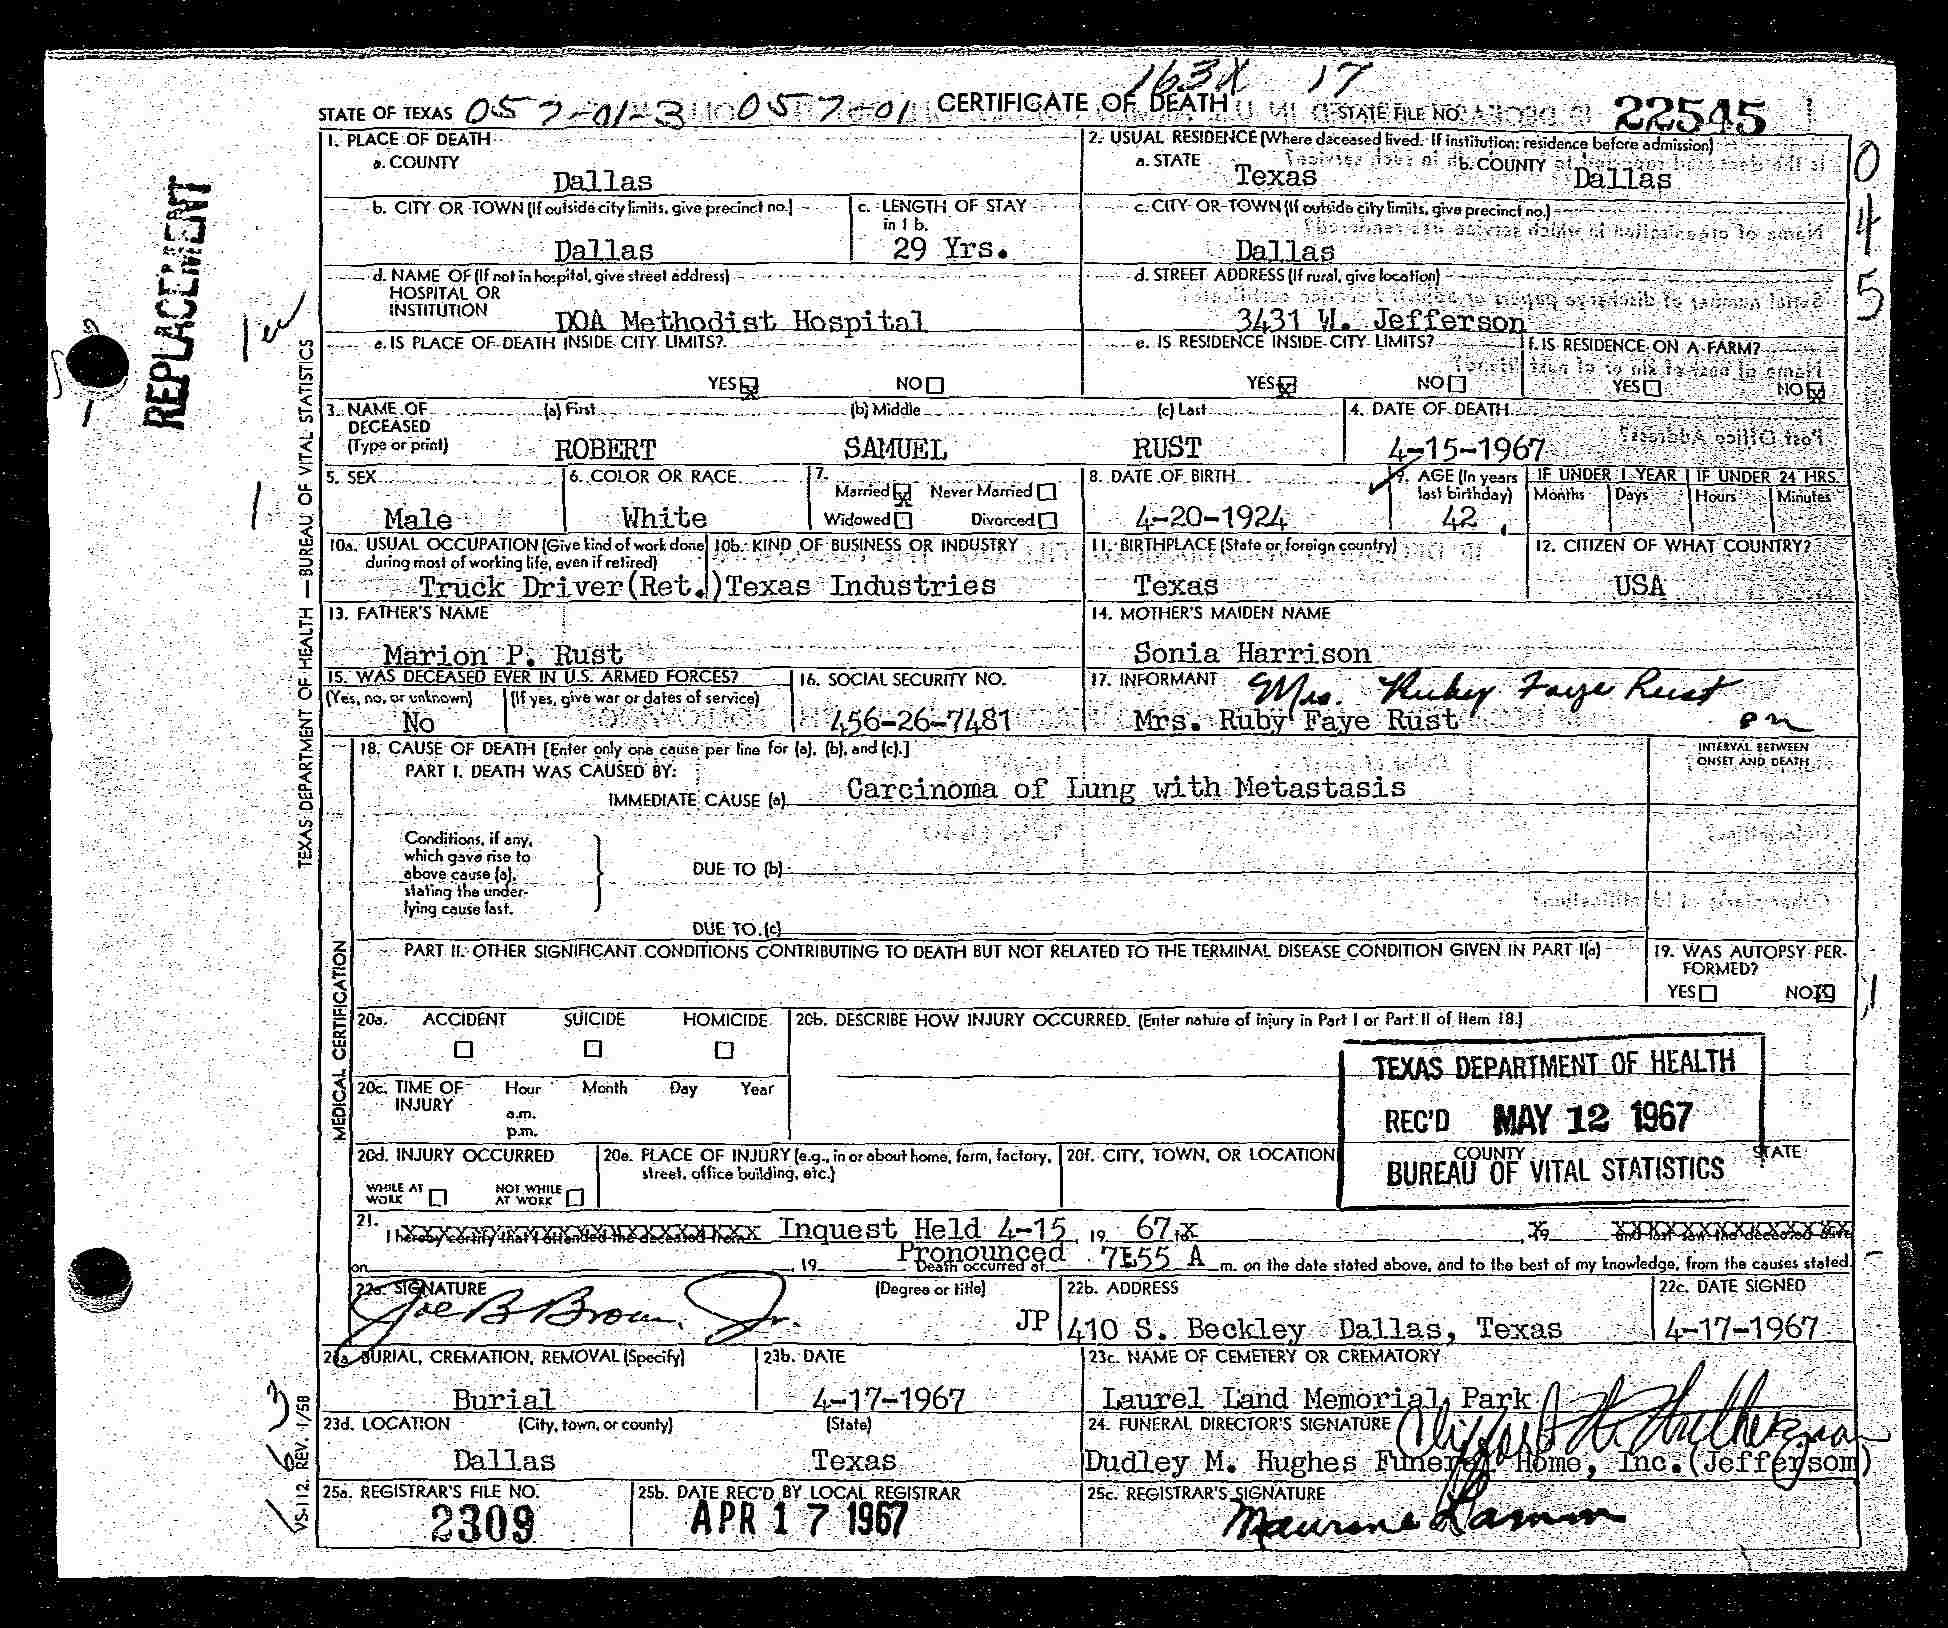 163X 17
STATE OF TEXAS 057-01-3 057-01 CERTIFICATE OF DEATH STATE FILE NO. 22545
045
REPLACEMENT
TEXAS DEPARTMENT OF HEALTH — BUREAU OF VITAL STATISTICS
1. PLACE OF DEATH
a. COUNTY
Dallas
2. USUAL RESIDENCE (Where deceased lived. If institution: residence before admission)
a. STATE
Texas
b. COUNTY
Dallas
b. CITY OR TOWN (If outside city limits, give precinct no.)
Dallas
c. LENGTH OF STAY
in 1 b.
29 Yrs.
c. CITY OR TOWN (If outside city limits, give precinct no.)
Dallas
d. NAME OF (If not in hospital, give street address)
HOSPITAL OR
INSTITUTION
DOA Methodist Hospital
d. STREET ADDRESS (If rural, give location)
3431 W. Jefferson
e. IS PLACE OF DEATH INSIDE CITY LIMITS?
YES NO
e. IS RESIDENCE INSIDE CITY LIMITS?
YES NO
f. IS RESIDENCE ON A FARM?
YES NO
3. NAME OF
DECEASED
(Type or print)
(a) First (b) Middle (c) Last
ROBERT SAMUEL RUST
4. DATE OF DEATH
4-15-1967
5. SEX
Male
6. COLOR OR RACE
White
7.
Married Never Married
Widowed Divorced
8. DATE OF BIRTH
4-20-1924
9. AGE (In years
last birthday)
42
IF UNDER 1 YEAR
Months Days
IF UNDER 24 HRS.
Hours Minutes
10a. USUAL OCCUPATION (Give kind of work done
during most of working life, even if retired)
Truck Driver(Ret.)
10b. KIND OF BUSINESS OR INDUSTRY
Texas Industries
11. BIRTHPLACE (State or foreign country)
Texas
12. CITIZEN OF WHAT COUNTRY?
USA
13. FATHER'S NAME
Marion P. Rust
14. MOTHER'S MAIDEN NAME
Sonia Harrison
15. WAS DECEASED EVER IN U.S. ARMED FORCES?
(Yes, no, or unknown) (If yes, give war or dates of service)
No
16. SOCIAL SECURITY NO.
456-26-7481
17. INFORMANT Mrs. Ruby Faye Rust
Mrs. Ruby Faye Rust
MEDICAL CERTIFICATION
18. CAUSE OF DEATH [Enter only one cause per line for (a), (b), and (c).]
PART I. DEATH WAS CAUSED BY:
IMMEDIATE CAUSE (a) Carcinoma of Lung with Metastasis
INTERVAL BETWEEN
ONSET AND DEATH
Conditions, if any,
which gave rise to
above cause (a),
stating the under-
lying cause last.
DUE TO (b)
DUE TO (c)
PART II. OTHER SIGNIFICANT CONDITIONS CONTRIBUTING TO DEATH BUT NOT RELATED TO THE TERMINAL DISEASE CONDITION GIVEN IN PART I(a)
19. WAS AUTOPSY PER-
FORMED?
YES NO
20a. ACCIDENT SUICIDE HOMICIDE
20b. DESCRIBE HOW INJURY OCCURRED. (Enter nature of injury in Part I or Part II of Item 18.)
20c. TIME OF
INJURY
Hour Month Day Year
a.m.
p.m.
TEXAS DEPARTMENT OF HEALTH
REC'D MAY 12 1967
BUREAU OF VITAL STATISTICS
20d. INJURY OCCURRED
WHILE AT
WORK
NOT WHILE
AT WORK
20e. PLACE OF INJURY (e.g., in or about home, farm, factory,
street, office building, etc.)
20f. CITY, TOWN, OR LOCATION COUNTY STATE
21. I hereby certify that I attended the deceased from Inquest Held 4-15, 19 67, 19 and last saw the deceased alive
on 19 Pronounced
Death occurred at 7:55 A m. on the date stated above, and to the best of my knowledge, from the causes stated.
22a. SIGNATURE (Degree or title)
Joe B Brown, Jr. JP
22b. ADDRESS
410 S. Beckley Dallas, Texas
22c. DATE SIGNED
4-17-1967
23a. BURIAL, CREMATION, REMOVAL (Specify)
Burial
23b. DATE
4-17-1967
23c. NAME OF CEMETERY OR CREMATORY
Laurel Land Memorial Park
23d. LOCATION (City, town, or county) (State)
Dallas Texas
24. FUNERAL DIRECTOR'S SIGNATURE
Dudley M. Hughes Funeral Home, Inc.(Jefferson)
25a. REGISTRAR'S FILE NO.
2309
25b. DATE REC'D BY LOCAL REGISTRAR
APR 17 1967
25c. REGISTRAR'S SIGNATURE
VS-112 REV. 1/58
163